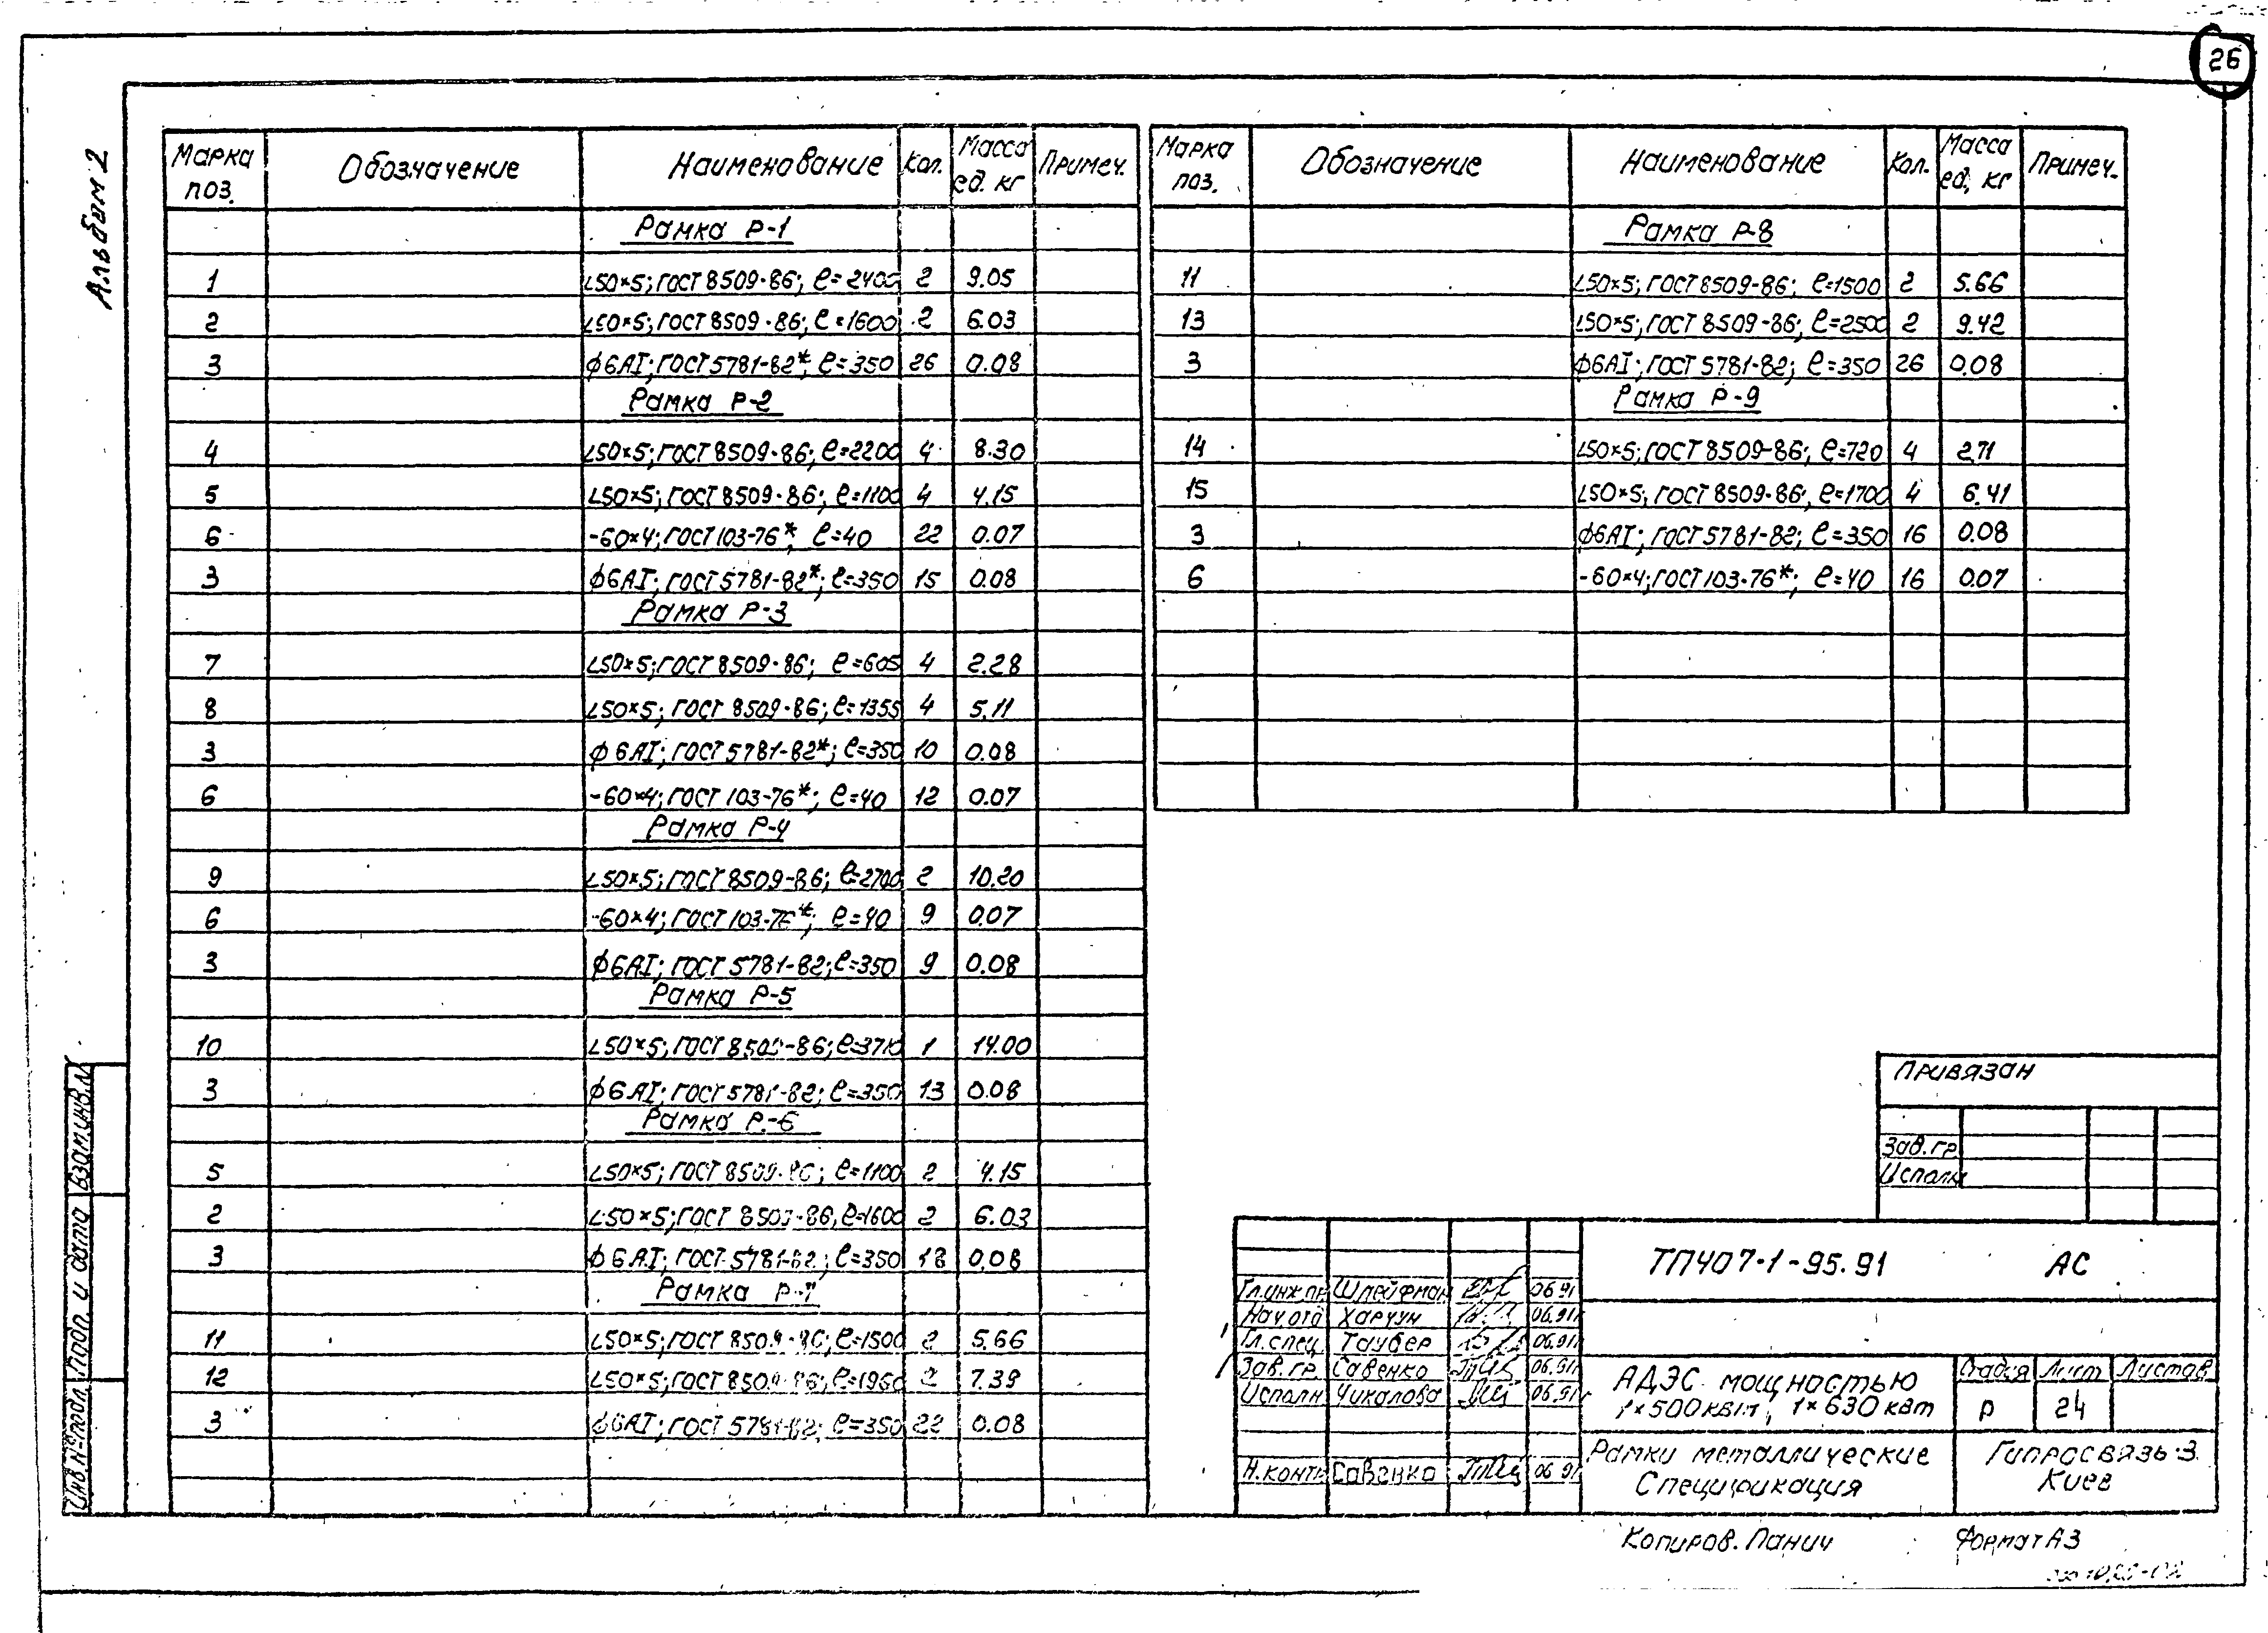 26
Альбом 2
Марка поз. Обозначение Наименование Кол. Масса ед. кг Примеч.
Рамка Р-1
1 L50×5; ГОСТ 8509-86; ℓ=2400 2 9.05
2 L50×5; ГОСТ 8509-86; ℓ=1600 2 6.03
3 ϕ6АI; ГОСТ 5781-82*; ℓ=350 26 0.08
Рамка Р-2
4 L50×5; ГОСТ 8509-86; ℓ=2200 4 8.30
5 L50×5; ГОСТ 8509-86; ℓ=1100 4 4.15
6 -60×4; ГОСТ 103-76*; ℓ=40 22 0.07
3 ϕ6АI; ГОСТ 5781-82*; ℓ=350 15 0.08
Рамка Р-3
7 L50×5; ГОСТ 8509-86; ℓ=605 4 2.28
8 L50×5; ГОСТ 8509-86; ℓ=1355 4 5.11
3 ϕ6АI; ГОСТ 5781-82*; ℓ=350 10 0.08
6 -60×4; ГОСТ 103-76*; ℓ=40 12 0.07
Рамка Р-4
9 L50×5; ГОСТ 8509-86; ℓ=2700 2 10.20
6 -60×4; ГОСТ 103-76*; ℓ=40 9 0.07
3 ϕ6АI; ГОСТ 5781-82; ℓ=350 9 0.08
Рамка Р-5
10 L50×5; ГОСТ 8509-86; ℓ=3710 1 14.00
3 ϕ6АI; ГОСТ 5781-82; ℓ=350 13 0.08
Рамка Р-6
5 L50×5; ГОСТ 8509-86; ℓ=1100 2 4.15
2 L50×5; ГОСТ 8509-86, ℓ=1600 2 6.03
3 ϕ6АI; ГОСТ 5781-82; ℓ=350 18 0.08
Рамка Р-7
11 L50×5; ГОСТ 8509-86; ℓ=1500 2 5.66
12 L50×5; ГОСТ 8509-86; ℓ=1960 2 7.39
3 ϕ6АI; ГОСТ 5781-82; ℓ=350 22 0.08
Марка поз. Обозначение Наименование Кол. Масса ед, кг Примеч.
Рамка Р-8
11 L50×5; ГОСТ 8509-86; ℓ=1500 2 5.66
13 L50×5; ГОСТ 8509-86; ℓ=2500 2 9.42
3 ϕ6АI; ГОСТ 5781-82; ℓ=350 26 0.08
Рамка Р-9
14 L50×5; ГОСТ 8509-86; ℓ=720 4 2.71
15 L50×5; ГОСТ 8509-86; ℓ=1700 4 6.41
3 ϕ6АI; ГОСТ 5781-82; ℓ=350 16 0.08
6 -60×4; ГОСТ 103-76*; ℓ=40 16 0.07
Привязан
Зав.гр.
Исполн
ТП407-1-95.91 АС
Гл.инж.пр Шлейфман 06.91
Нач.отд Харчун 06.91г
Гл.спец Таубер 06.91г
Зав.гр. Савенко 06.91г
Исполн Чикалова 06.91г
Н.контр Савенко 06.91
АДЭС мощностью
1×500 квт, 1×630 квт
Стадия Лист Листов
Р 24
Рамки металлические
Спецификация
Гипросвязь-3
Киев
Копиров. Панич Формат А3
Взам.инв.№
Подп. и дата
Инв.№подл.